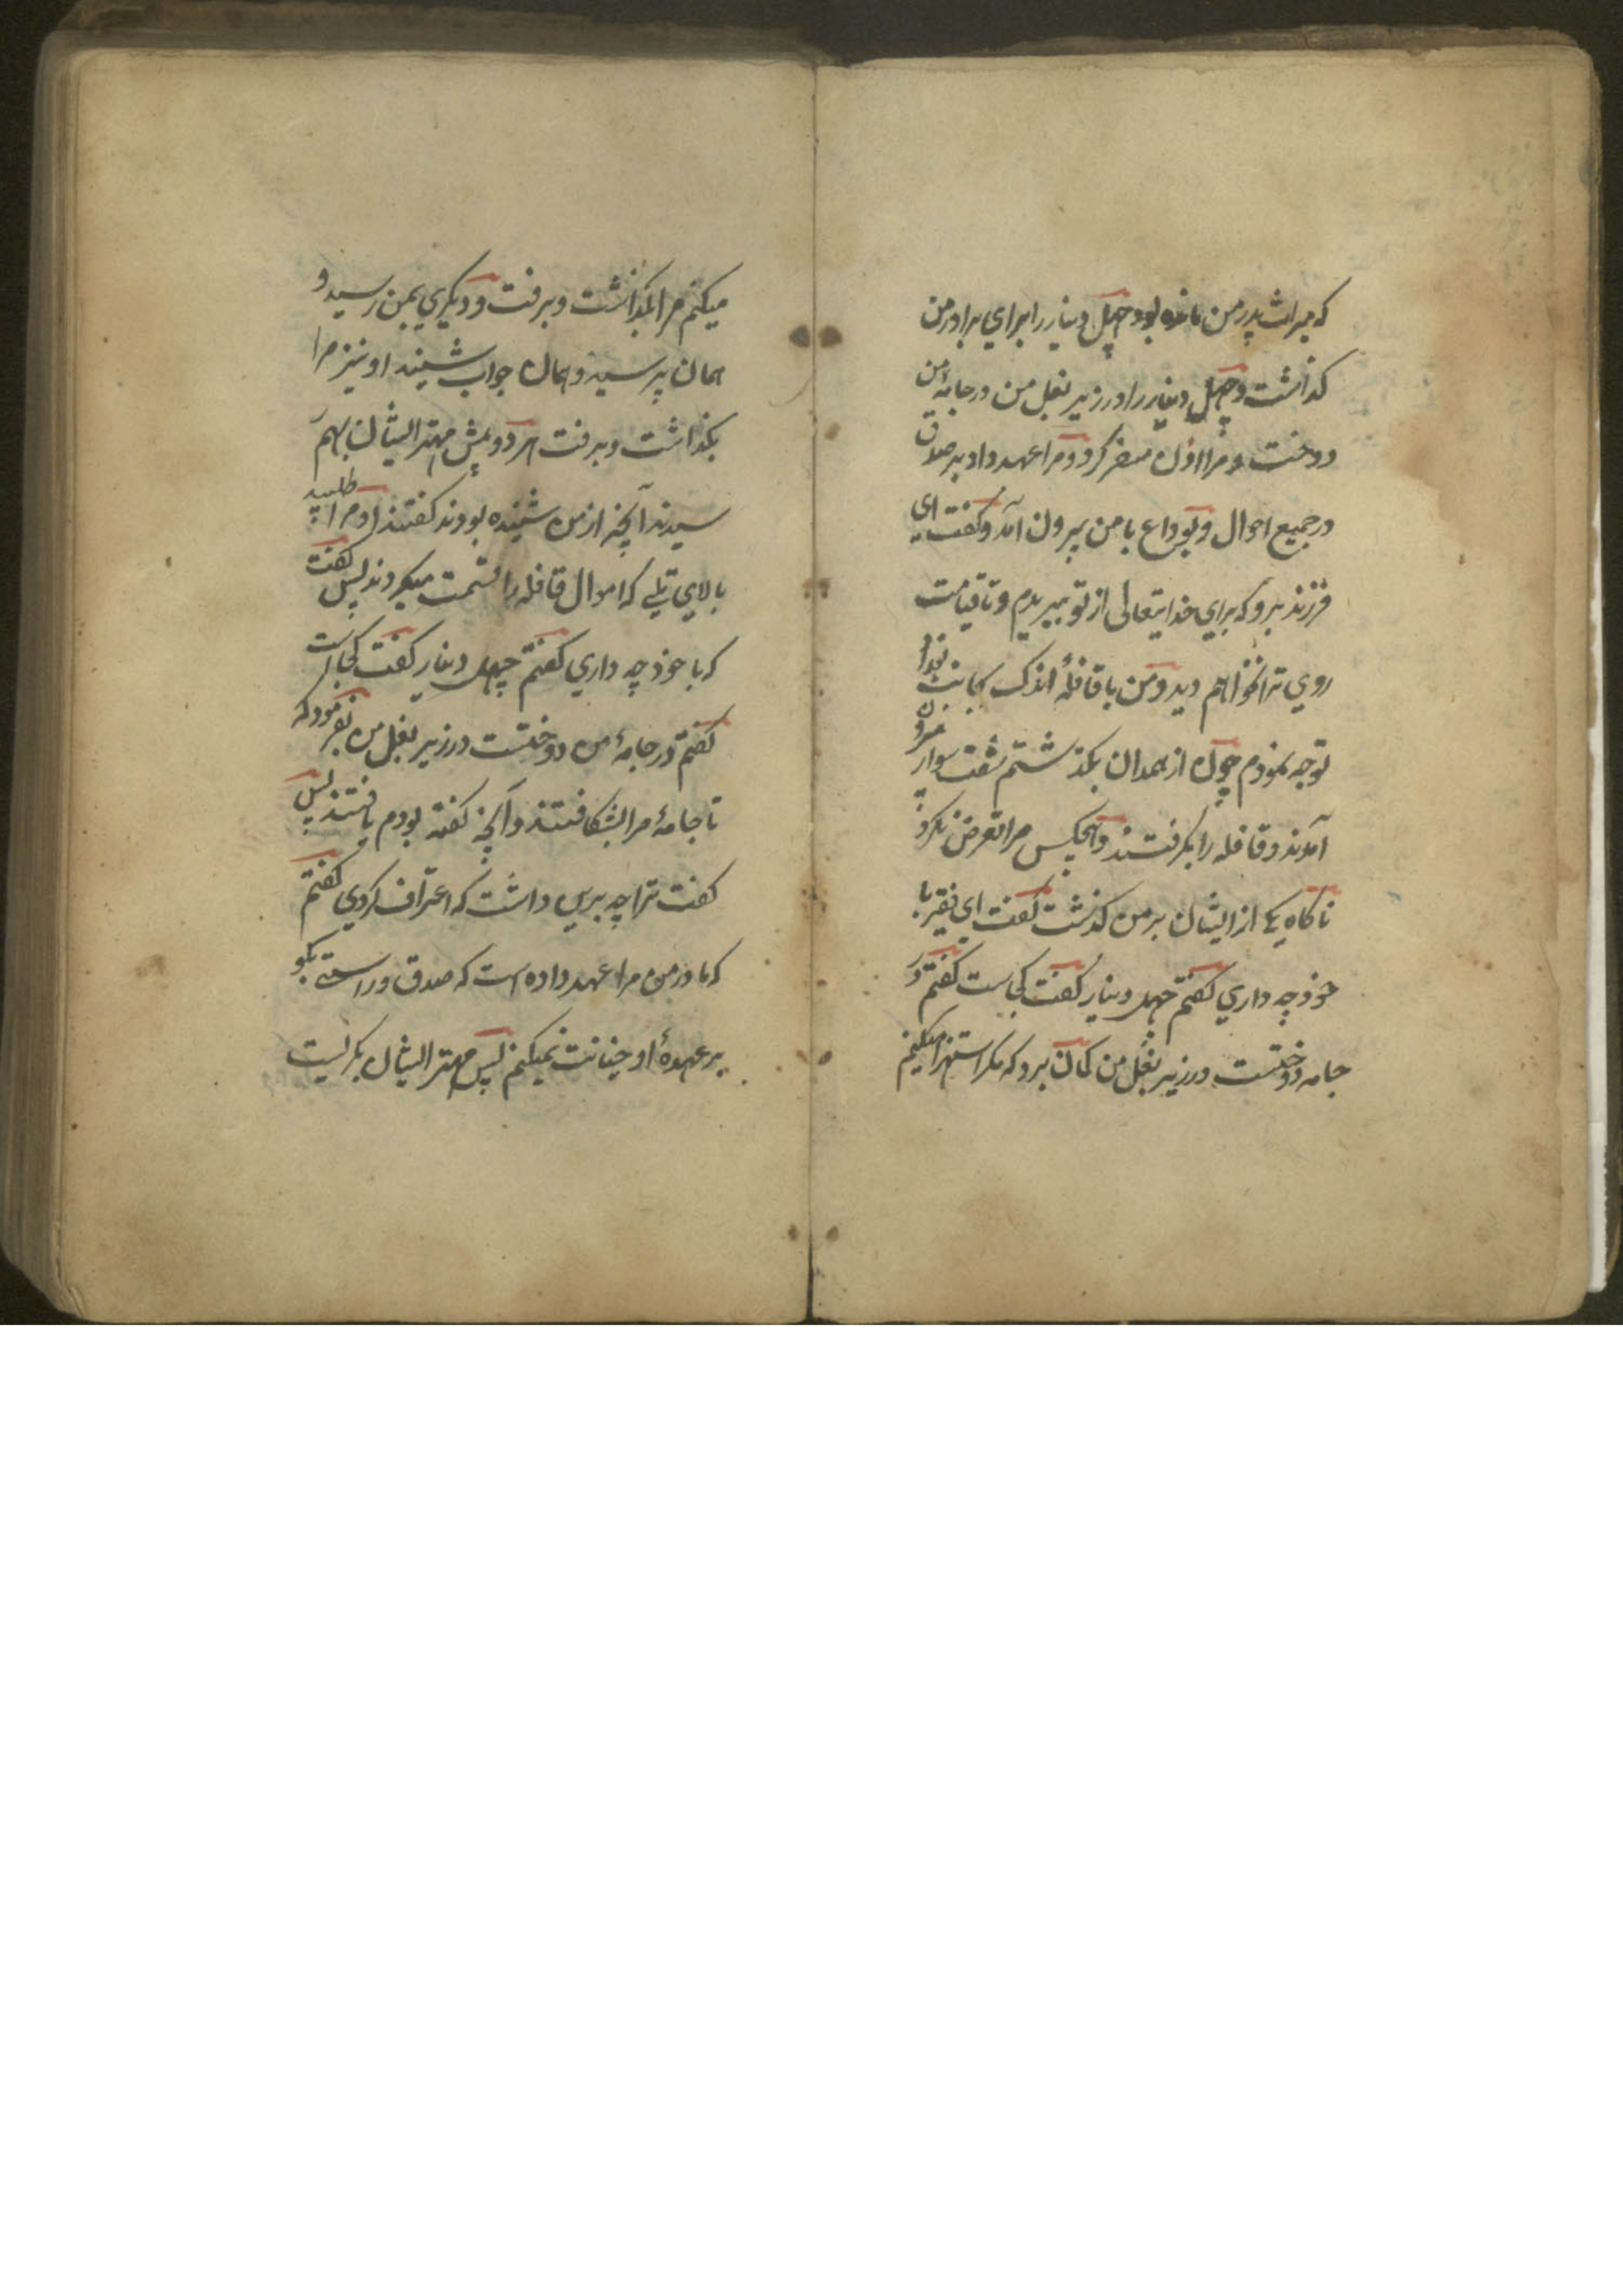 که میراث پدر من مانده بود چهل دینار را برای برادر من
گذاشت و چهل دینار را در زیر بغل من در جامهٔ من
دوخت و مرا اذن سفر کرد و مرا عهد داد بر صدق
در جمیع احوال و بوداع با من بیرون آمد و گفت ای
فرزند برو که برای خدایتعالی از تو ببریدم و تا قیامت
روی ترا نخواهم دید و من با قافلهٔ اندک بجانب بغداد
توجه نمودم چون از همدان بگذشتم شصت سوار بیرون
آمدند و قافله را بگرفتند و هیچکس مرا تعرض نکرد
ناکاه یکی از ایشان بر من گذشت گفت ای فقیر با
خود چه داری گفتم چهل دینار گفت کجاست گفتم در
جامه دوختست در زیر بغل من گمان برد که مگر استهزا میکنم
میکنم مرا بگذاشت و برفت و دیگری بمن رسید و
همان پرسید و همان جواب شنید او نیز مرا
بگذاشت و برفت هر دو پیش مهتر ایشان بهم
سیدند آنچه از من شنیده بودند گفتند او مرا طلبید
بالای تلی که اموال قافله را قسمت میکردند پس گفت
که با خود چه داری گفتم چهل دینار گفت کجاست
گفتم در جامهٔ من دوختست در زیر بغل من بفرمود که
تا جامهٔ مرا بشکافتند و آنچه گفته بودم یافتند پس
گفت ترا چه برین داشت که اعتراف کردی گفتم
که مادر من مرا عهد داده است که صدق و راستی بگو
بر عهدهٔ او خیانت نمیکنم پس مهتر ایشان بگریست